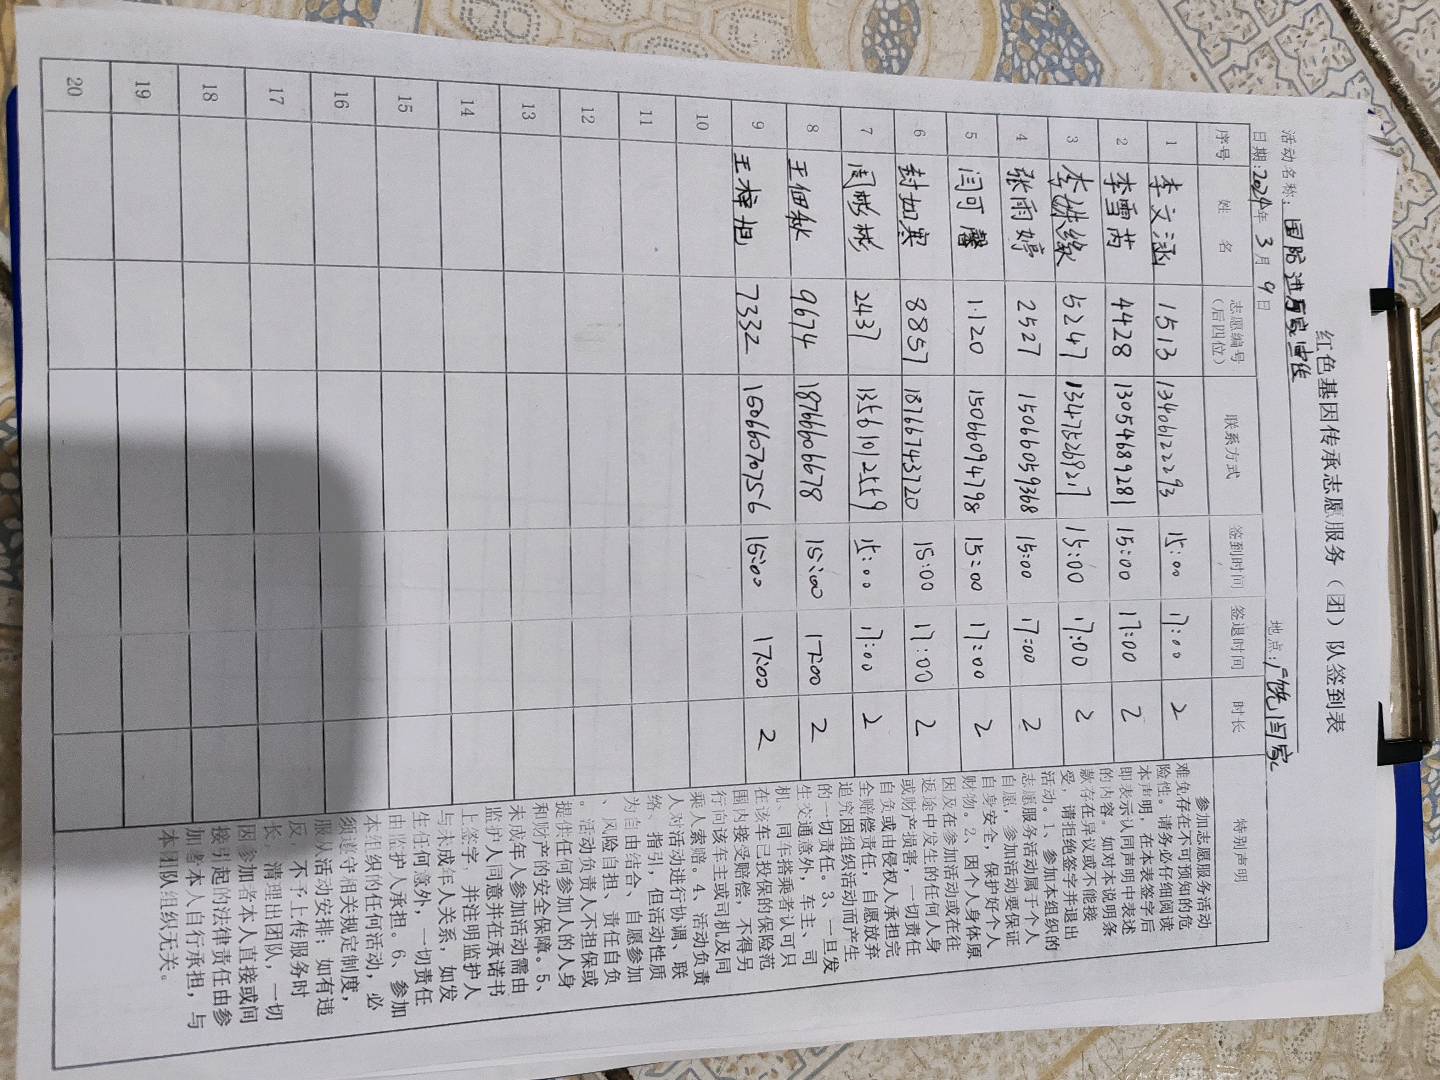 红色基因传承志愿服务（团）队签到表
活动名称：国防进万家宣传
地点：广饶闫家
日期：2024年3月9日
序号 姓名 志愿编号（后四位） 联系方式 签到时间 签退时间 时长 特别声明
1 李文涵 1513 13406122293 15:00 17:00 2
2 李雪芮 4428 13054689281 15:00 17:00 2
3 李姝缘 5247 13475269217 15:00 17:00 2
4 张雨婷 2527 15066059368 15:00 17:00 2
5 闫可馨 1120 15066094798 15:00 17:00 2
6 封如寒 8857 18766743720 15:00 17:00 2
7 周彬彬 2437 13561012559 15:00 17:00 2
8 王佃秋 9674 18766606678 15:00 17:00 2
9 王梓旭 7332 15066070756 15:00 17:00 2
10
11
12
13
14
15
16
17
18
19
20
参加志愿服务活动
难免存在不可预知的危
险性。请务必仔细阅读
本声明，在本表签字后
即表示认同声明中表述
的内容。如对本说明条
款存在异议或不能接
受，请拒绝签字并退出
活动。1、参加本组织的
志愿服务活动属于个人
自愿，参加活动要保证
自身安全，保护好个人
财物。2、因个人身体原
因及在参加活动或在往
返途中发生的任何人身
或财产损害，一切责任
自负或由侵权人承担完
全赔偿责任，自愿放弃
追究因组织活动而产生
的一切责任。3、一旦发
生交通意外，车主、司
机、同车搭乘者认可只
在该车已投保的保险范
围内接受赔偿，不得另
行向该车主或司机及同
乘人索赔。4、活动负责
人对活动进行协调、联
络、指引，但活动性质
为自由结合，自愿参加
、风险自担、责任自负
。活动负责人不担保或
提供任何参加人的人身
和财产的安全保障。5、
未成年人参加活动需由
监护人同意并在承诺书
上签字，并注明监护人
与未成年人关系，如发
生任何意外，一切责任
由监护人承担。6、参加
本组织的任何活动，必
须遵守相关规定制度，
服从活动安排；如有违
反，不予上传服务时
长，清理出团队，一切
因参加者本人直接或间
接引起的法律责任由参
加者本人自行承担，与
本团队组织无关。